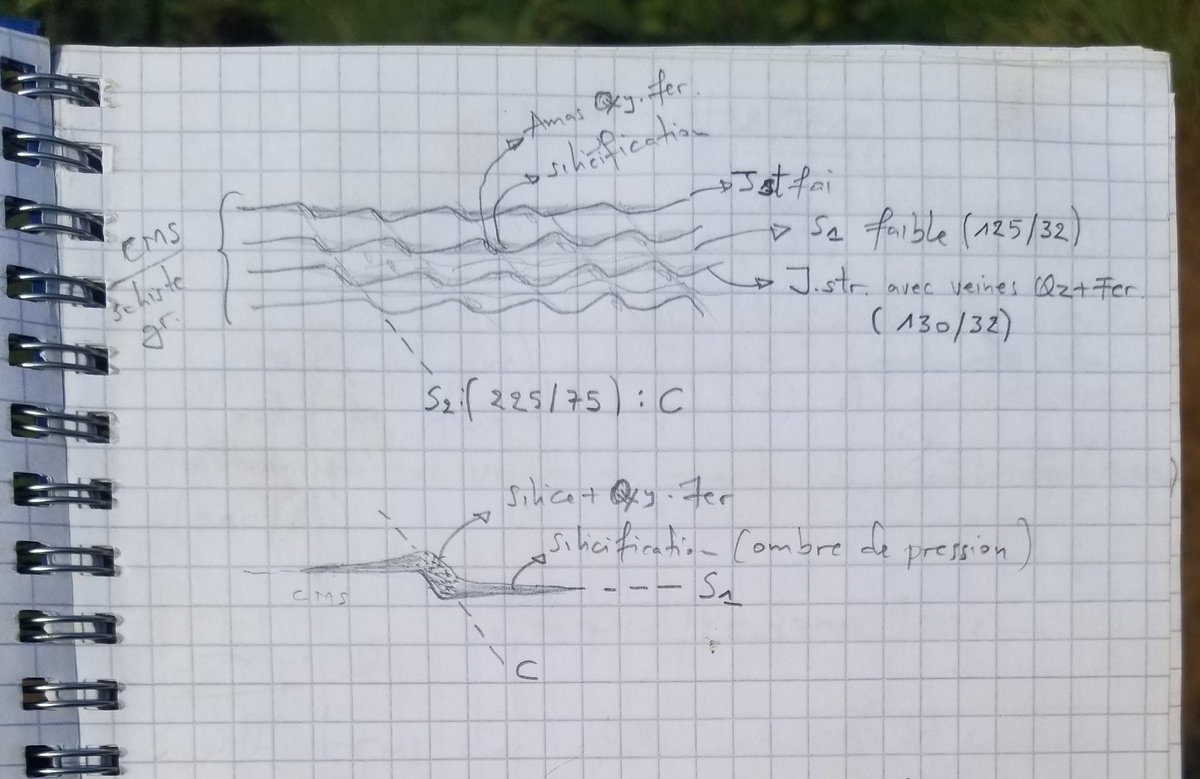 Amas Oxy. Fer.
silicification
J. st fai
S1 faible (125/32)
J. str. avec veines Qz + Fer.
(130/32)
CMS
schiste
gr.
S2: (225/75) : C
Silice + Oxy. Fer
Silicification (ombre de pression)
CMS
S1
C